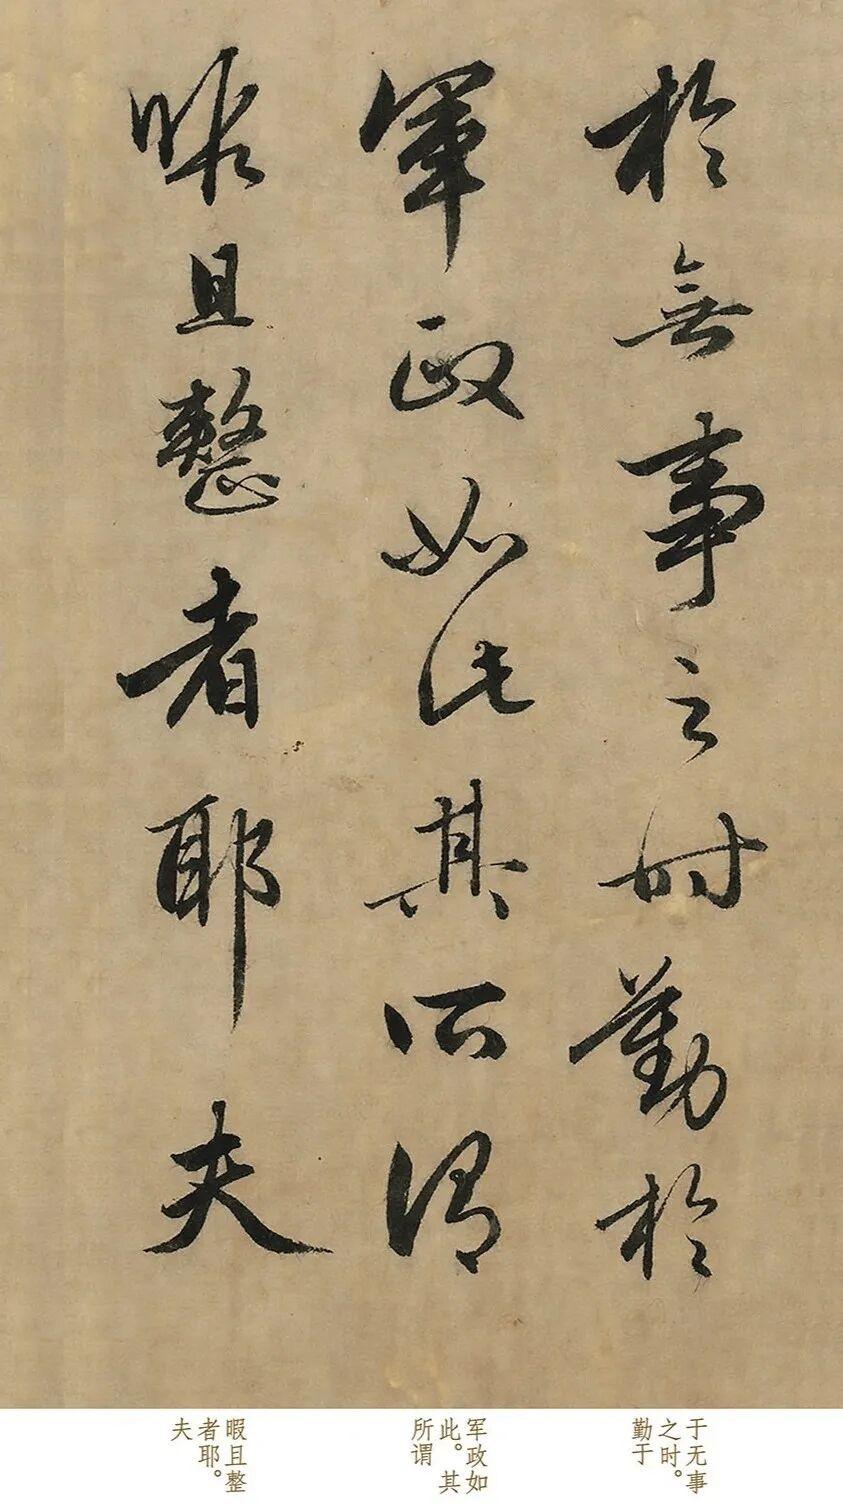 於無事之时勤於
軍政如此其所謂
暇且整者耶夫
于无事
之时。
勤于
军政如
此。其
所谓
暇且整
者耶。
夫